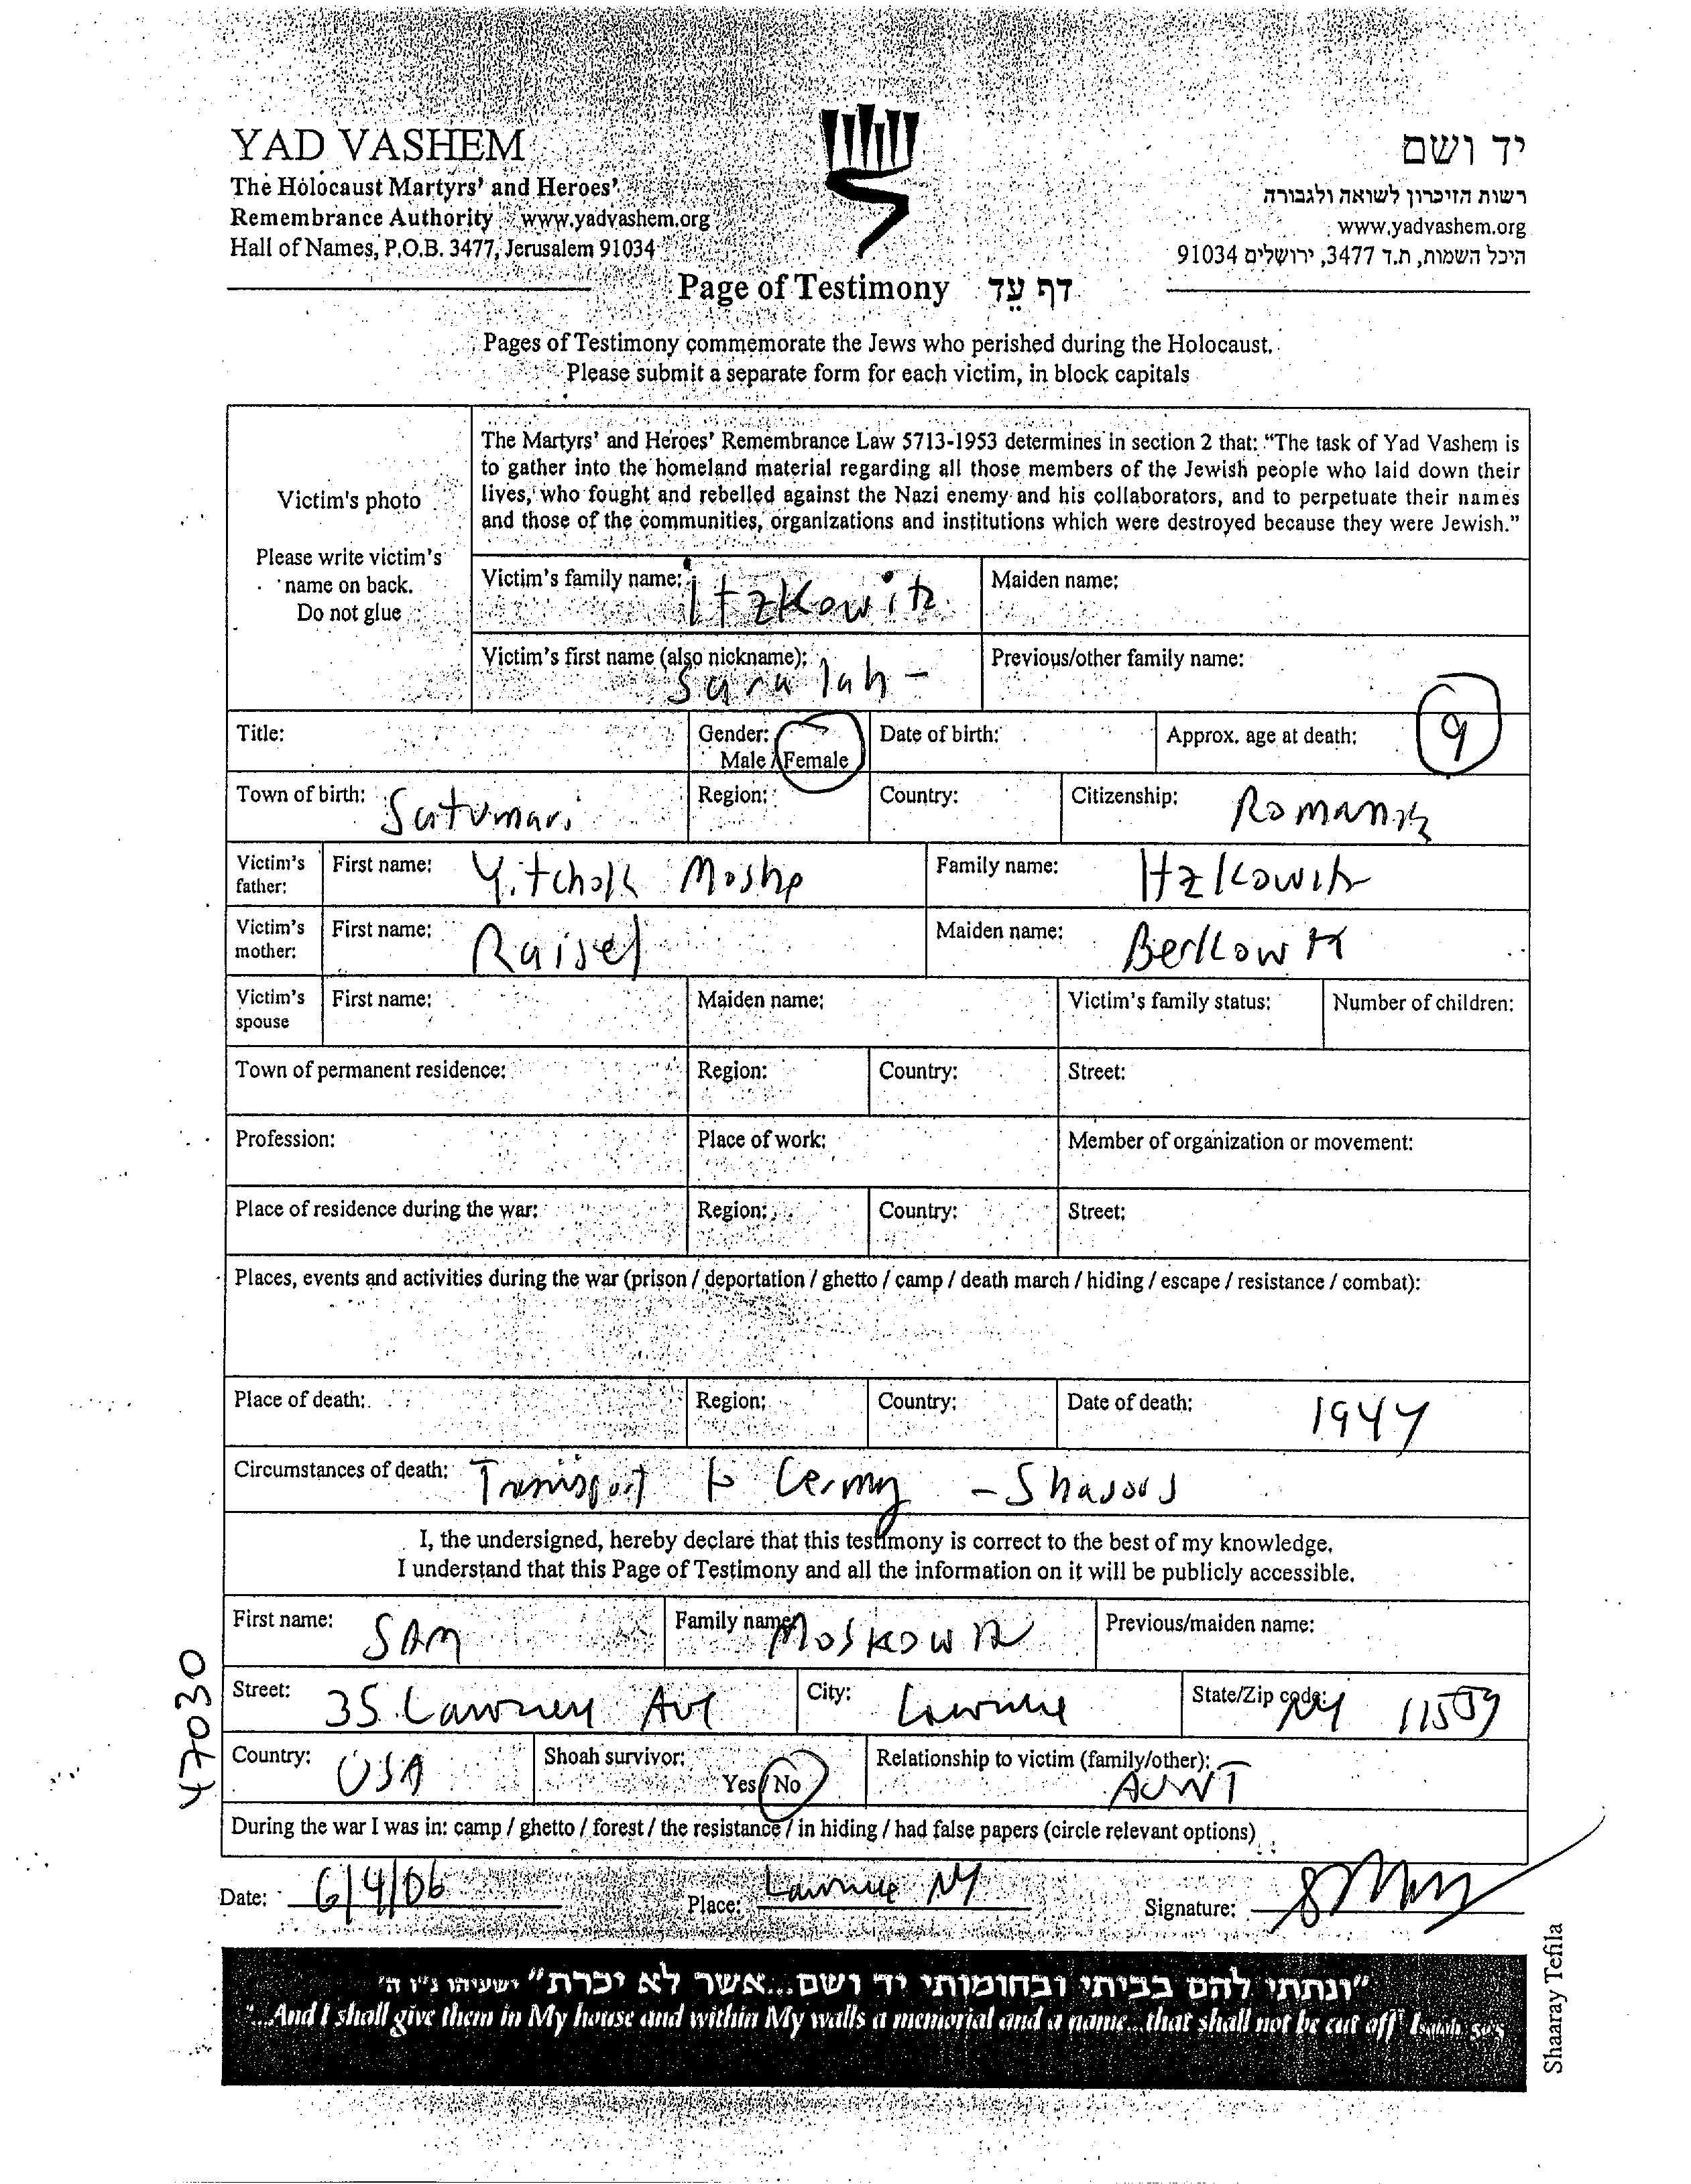 YAD VASHEM
The Holocaust Martyrs' and Heroes'
Remembrance Authority www.yadvashem.org
Hall of Names, P.O.B. 3477, Jerusalem 91034
יד ושם
רשות הזיכרון לשואה ולגבורה
www.yadvashem.org
היכל השמות, ת.ד 3477, ירושלים 91034
Page of Testimony דף עֵד
Pages of Testimony commemorate the Jews who perished during the Holocaust.
Please submit a separate form for each victim, in block capitals
Victim's photo
Please write victim's
name on back.
Do not glue
The Martyrs' and Heroes' Remembrance Law 5713-1953 determines in section 2 that: "The task of Yad Vashem is
to gather into the homeland material regarding all those members of the Jewish people who laid down their
lives, who fought and rebelled against the Nazi enemy and his collaborators, and to perpetuate their names
and those of the communities, organizations and institutions which were destroyed because they were Jewish."
Victim's family name: Itzkowitz Maiden name:
Victim's first name (also nickname): Sara lah - Previous/other family name:
Title: Gender: Male / Female Date of birth: Approx. age at death: 9
Town of birth: Satumari Region: Country: Citizenship: Romania
Victim's father: First name: Yitchok Moshe Family name: Itzkowitz
Victim's mother: First name: Raisel Maiden name: Berkowitz
Victim's spouse First name: Maiden name: Victim's family status: Number of children:
Town of permanent residence: Region: Country: Street:
Profession: Place of work: Member of organization or movement:
Place of residence during the war: Region: Country: Street:
Places, events and activities during the war (prison / deportation / ghetto / camp / death march / hiding / escape / resistance / combat):
Place of death: Region: Country: Date of death: 1944
Circumstances of death: Transport to -
I, the undersigned, hereby declare that this testimony is correct to the best of my knowledge.
I understand that this Page of Testimony and all the information on it will be publicly accessible.
First name: SAM Family name: Moskowitz Previous/maiden name:
Street: 35 Lawrence Ave City: Lawrence State/Zip code: NY 11559
Country: USA Shoah survivor: Yes / No Relationship to victim (family/other): AUNT
During the war I was in: camp / ghetto / forest / the resistance / in hiding / had false papers (circle relevant options)
Date: 6/4/06 Place: Lawrence NY Signature:
47030
Shaaray Tefila
"ונתתי להם בביתי ובחומותי יד ושם...אשר לא יכרת" ישעיהו נ"ו ה'
"...And I shall give them in My house and within My walls a memorial and a name...that shall not be cut off" Isaiah 56:5